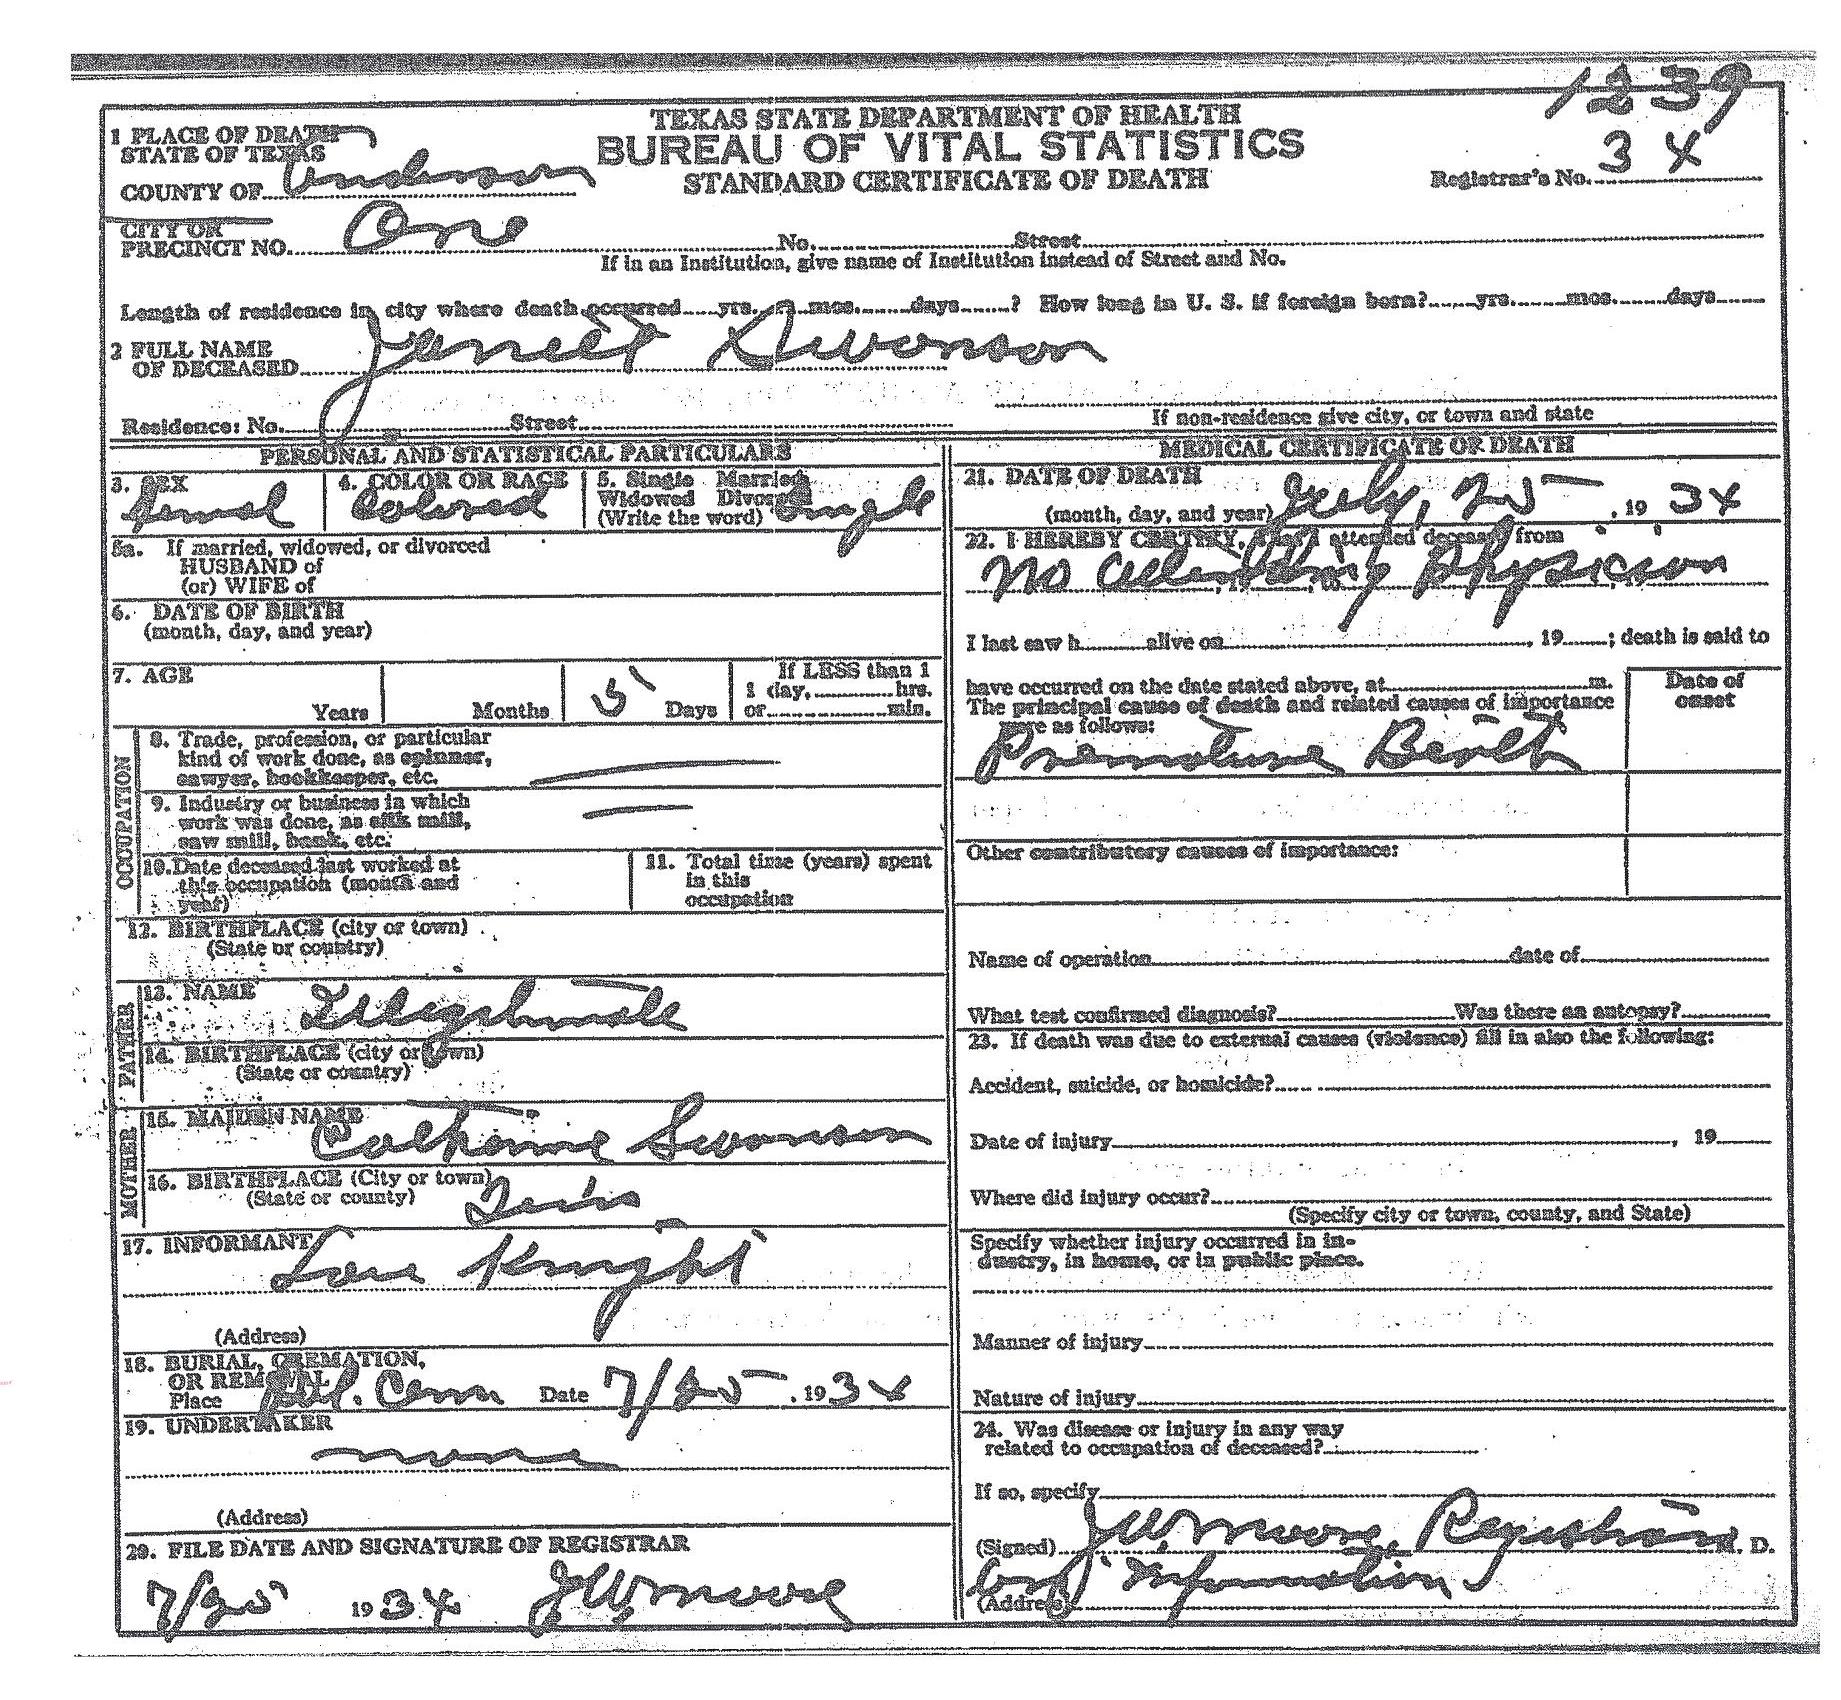 1239
TEXAS STATE DEPARTMENT OF HEALTH
BUREAU OF VITAL STATISTICS
STANDARD CERTIFICATE OF DEATH
Registrar's No. 34
1 PLACE OF DEATH
STATE OF TEXAS
COUNTY OF Anderson
CITY OR
PRECINCT NO. One No. Street
If in an Institution, give name of Institution instead of Street and No.
Length of residence in city where death occurred yrs. mos. days ? How long in U. S. if foreign born? yrs. mos. days
2 FULL NAME
OF DECEASED Janeil Swanson
Residence: No. Street
If non-residence give city, or town and state
PERSONAL AND STATISTICAL PARTICULARS
3. SEX
Femal
4. COLOR OR RACE
Colored
5. Single Married
Widowed Divorced
(Write the word) Single
5a. If married, widowed, or divorced
HUSBAND of
(or) WIFE of
6. DATE OF BIRTH
(month, day, and year)
7. AGE
Years Months 5 Days
If LESS than 1
1 day, hrs.
or min.
OCCUPATION
8. Trade, profession, or particular
kind of work done, as spinner,
sawyer, bookkeeper, etc.
9. Industry or business in which
work was done, as silk mill,
saw mill, bank, etc.
10. Date deceased last worked at
this occupation (month and
year)
11. Total time (years) spent
in this
occupation
12. BIRTHPLACE (city or town)
(State or country)
FATHER
13. NAME
14. BIRTHPLACE (city or town)
(State or country)
MOTHER
15. MAIDEN NAME
Catherine Swanson
16. BIRTHPLACE (City or town)
(State or county)
17. INFORMANT
Knight
(Address)
18. BURIAL, CREMATION,
OR REMOVAL
Place Cem Date 7/25, 1934
19. UNDERTAKER
none
(Address)
20. FILE DATE AND SIGNATURE OF REGISTRAR
7/25 1934 JW Moore
MEDICAL CERTIFICATE OF DEATH
21. DATE OF DEATH
(month, day, and year) July, 25, 1934
22. I HEREBY CERTIFY, That I attended deceased from
No Attending Physician
I last saw h alive on , 19 ; death is said to
have occurred on the date stated above, at m.
The principal cause of death and related causes of importance
were as follows:
Date of
onset
Premature Birth
Other contributory causes of importance:
Name of operation date of
What test confirmed diagnosis? Was there an autopsy?
23. If death was due to external causes (violence) fill in also the following:
Accident, suicide, or homicide?
Date of injury , 19
Where did injury occur?
(Specify city or town, county, and State)
Specify whether injury occurred in in-
dustry, in home, or in public place.
Manner of injury
Nature of injury
24. Was disease or injury in any way
related to occupation of deceased?
If so, specify
(Signed) JW Moore, Registrar M. D.
Information
(Address)